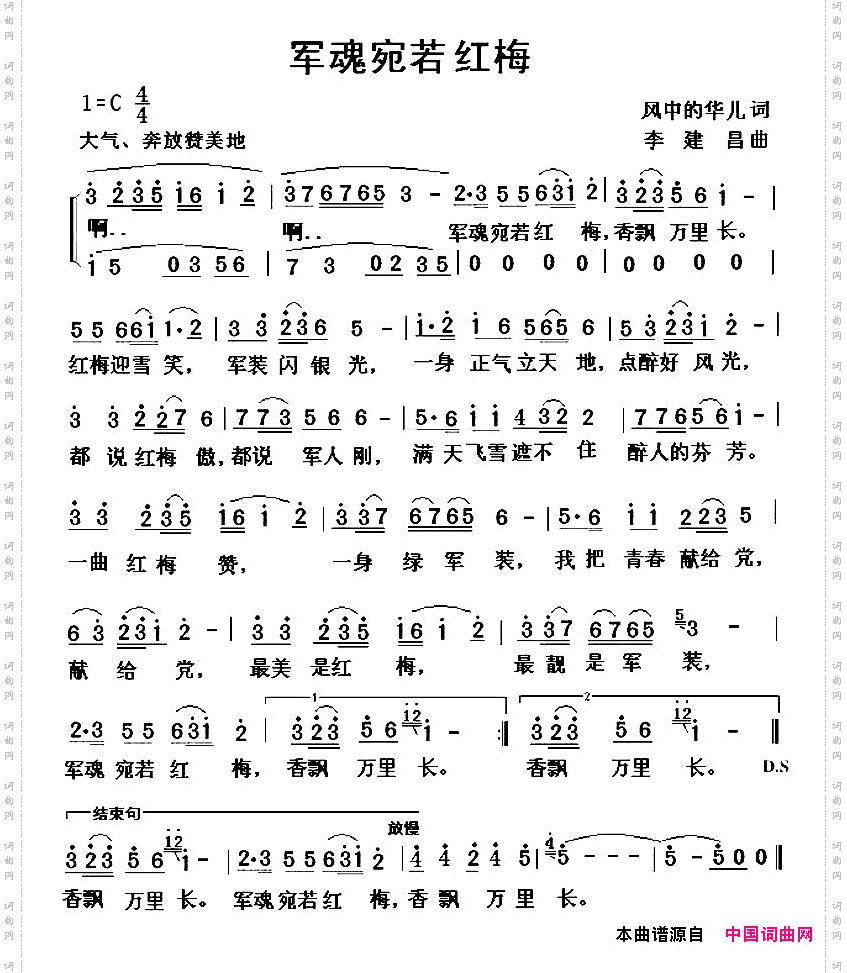 军魂宛若红梅
1=C 4/4
风中的华儿 词
大气、奔放赞美地
李建昌 曲
3 2 3 5 1 6 1 2 | 3 7 6 7 6 5 3 - | 2·3 5 5 6 3 1 2 | 3 2 3 5 6 1 - |
啊.. 啊.. 军魂宛若红 梅,香飘 万里长。
1 5 0 3 5 6 | 7 3 0 2 3 5 | 0 0 0 0 | 0 0 0 0 |
5 5 6 6 1 1·2 | 3 3 2 3 6 5 - | 1·2 1 6 5 6 5 6 | 5 3 2 3 1 2 - |
红梅迎雪 笑, 军装 闪 银 光, 一身 正气立天 地,点醉好 风光,
3 3 2 2 7 6 | 7 7 3 5 6 6 - | 5·6 1 1 4 3 2 2 | 7 7 6 5 6 1 - |
都 说红梅 傲,都说 军人刚, 满 天飞雪遮不 住 醉人的芬 芳。
3 3 2 3 5 1 6 1 2 | 3 3 7 6 7 6 5 6 - | 5·6 1 1 2 2 3 5 |
一曲 红 梅 赞, 一身 绿 军 装, 我 把 青春 献给 党,
6 3 2 3 1 2 - | 3 3 2 3 5 1 6 1 2 | 3 3 7 6 7 6 5 5 3 - |
献 给 党, 最美 是红 梅, 最 靓 是 军 装,
1 2
2·3 5 5 6 3 1 2 | 3 2 3 5 6 12 1 - :‖ 3 2 3 5 6 12 1 - ‖
军魂 宛若 红 梅, 香飘 万里 长。 香飘 万里 长。 D.S
结束句
放慢
3 2 3 5 6 12 1 - | 2·3 5 5 6 3 1 2 | 4 4 2 4 5 | 4 5 - - - | 5 - 5 0 0 ‖
香飘 万里 长。 军魂宛若红 梅,香飘 万 里 长。
本曲谱源自 中国词曲网
词曲网